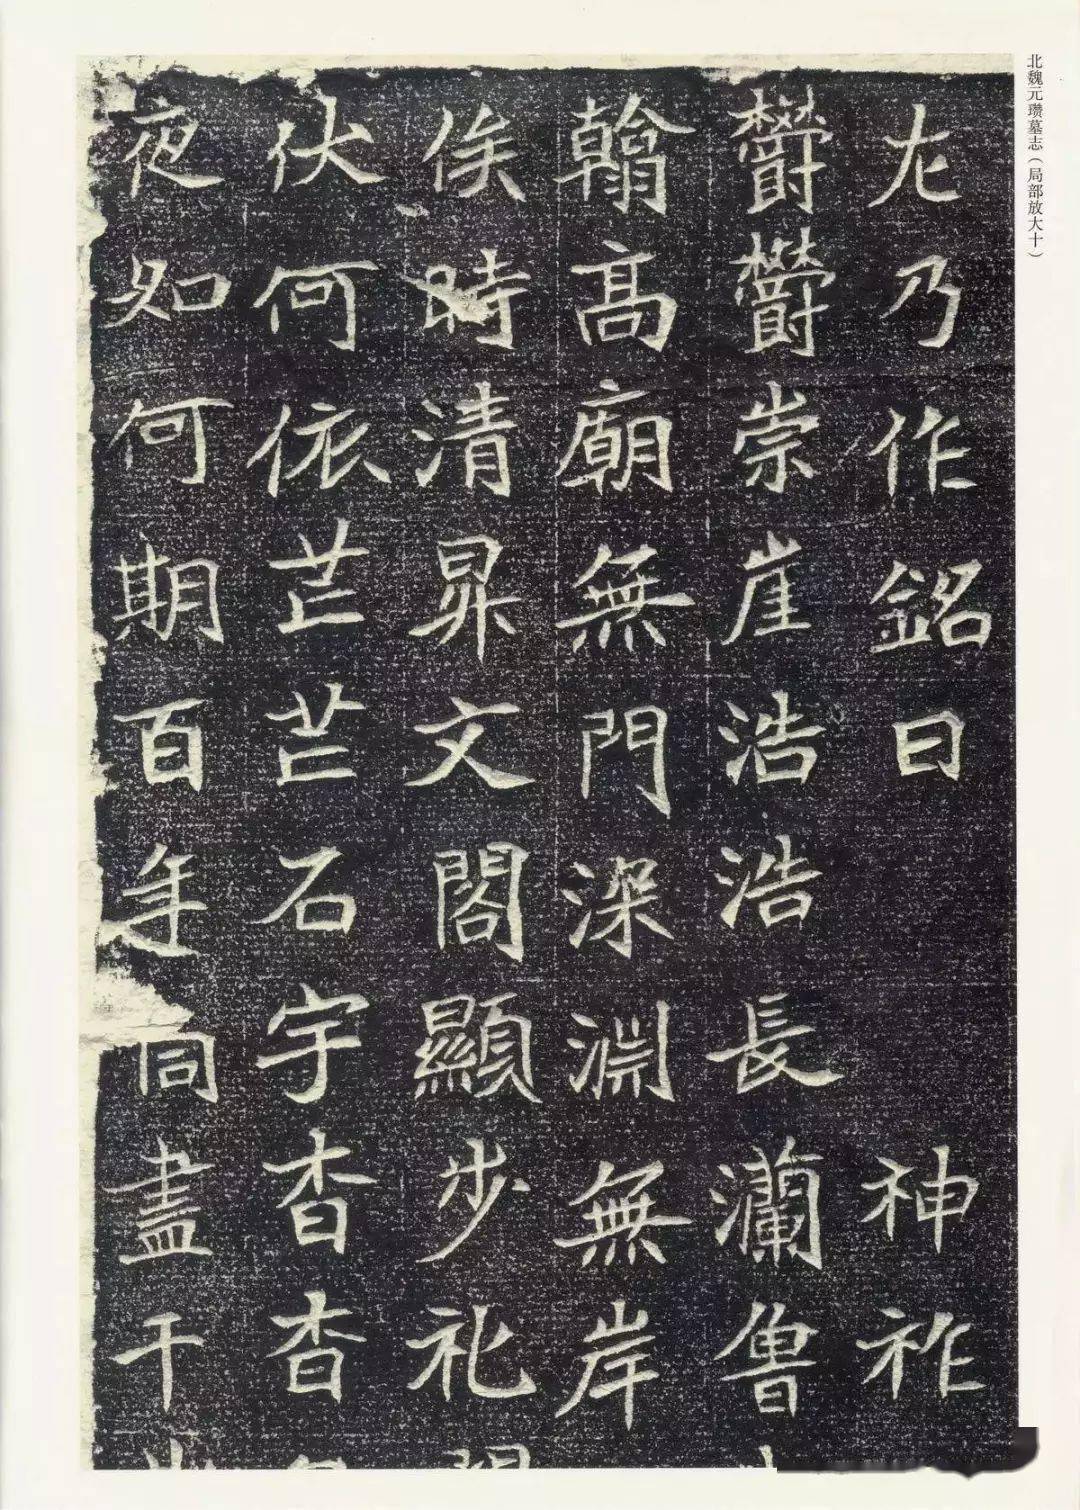 北魏元瓒墓志（局部放大十）
尤乃作銘曰　神祚
欝欝崇崖浩浩長瀾曾
翰高廟無門深淵無岸
俟時清昇文閣顯步礼
伏何依芒芒石宇杳杳
夜如何期百年同盡千